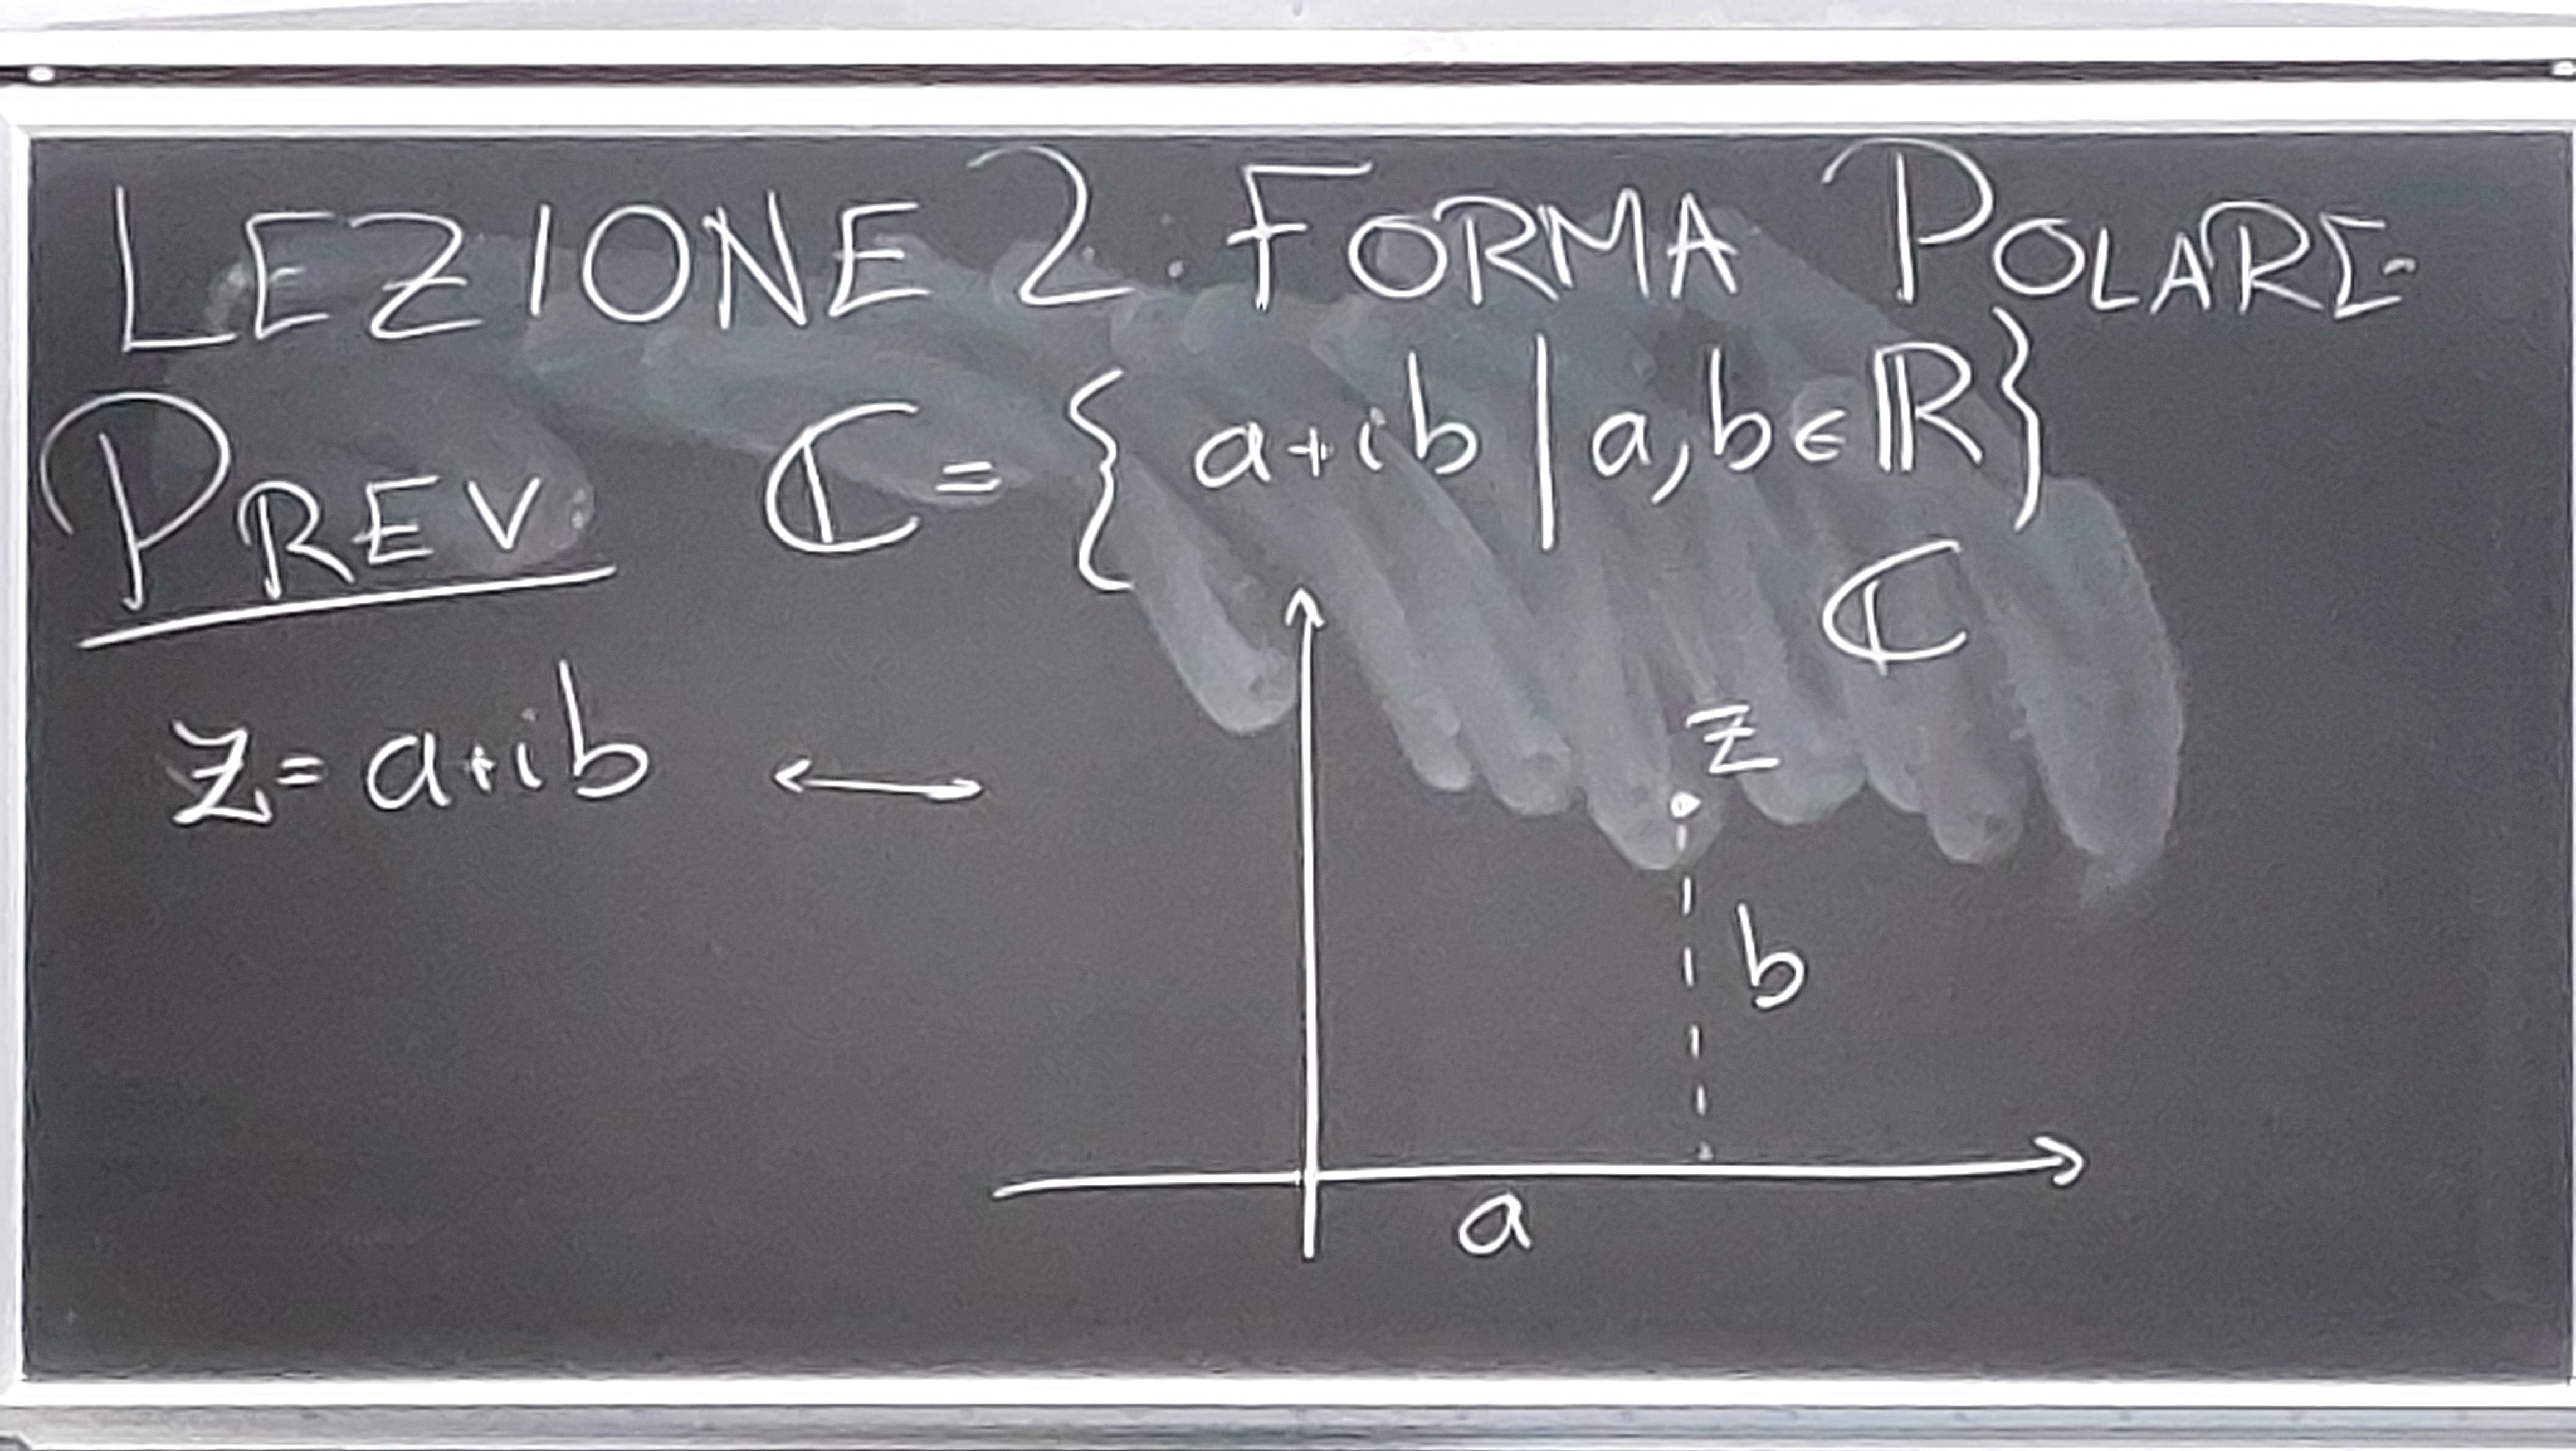 LEZIONE 2. FORMA POLARE.
PREV ℂ = { a+ib | a,b ∈ ℝ }
ℂ
z = a+ib ⟷
z
b
a